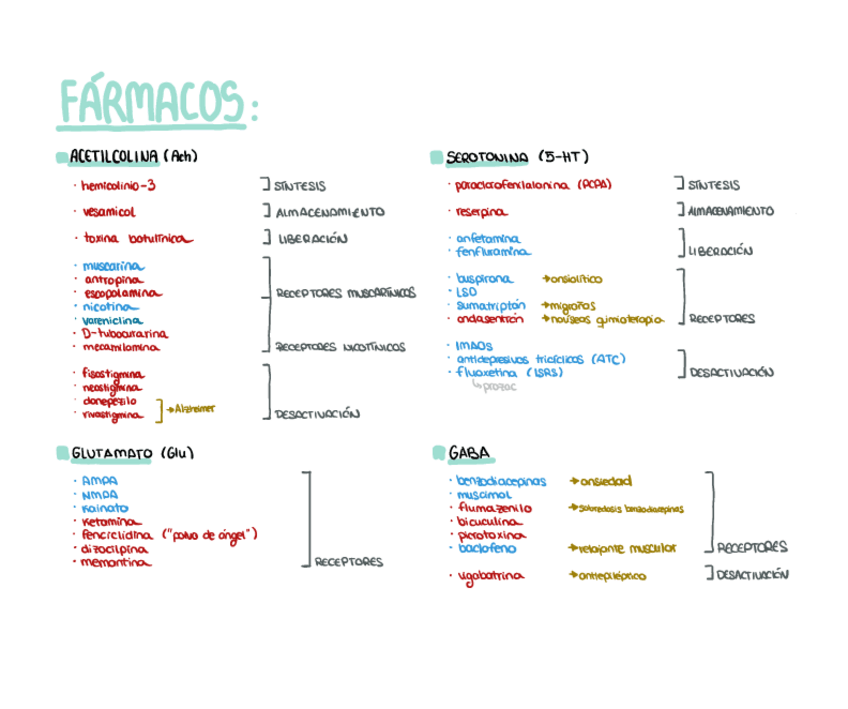 FÁRMACOS:
ACETILCOLINA (Ach)
· hemicolinio-3 SÍNTESIS
· vesamicol ALMACENAMIENTO
· toxina botulínica LIBERACIÓN
· muscarina
· antropina
· escopolamina RECEPTORES MUSCARÍNICOS
· nicotina
· vareniclina
· D-tubocurarina
· mecamilamina RECEPTORES NICOTÍNICOS
· fisostigmina
· neostigmina
· donepezilo
· rivastigmina → Alzheimer DESACTIVACIÓN
SEROTONINA (5-HT)
· paraclorofenilalanina (PCPA) SÍNTESIS
· reserpina ALMACENAMIENTO
· anfetamina
· fenfluramina LIBERACIÓN
· buspirona → ansiolítico
· LSD
· sumatriptán → migrañas
· ondasentrón → náuseas quimioterapia RECEPTORES
· IMAOs
· antidepresivos tricíclicos (ATC)
· fluoxetina (ISRS) DESACTIVACIÓN
↳ prozac
GLUTAMATO (Glu)
· AMPA
· NMDA
· Kainato
· Ketamina
· fenciclidina ("polvo de ángel")
· dizocilpina
· memantina RECEPTORES
GABA
· benzodiacepinas → ansiedad
· muscimol
· flumazenilo → sobredosis benzodiacepinas
· bicuculina
· picrotoxina
· baclofeno → relajante muscular RECEPTORES
· vigabatrina → antiepiléptico DESACTIVACIÓN